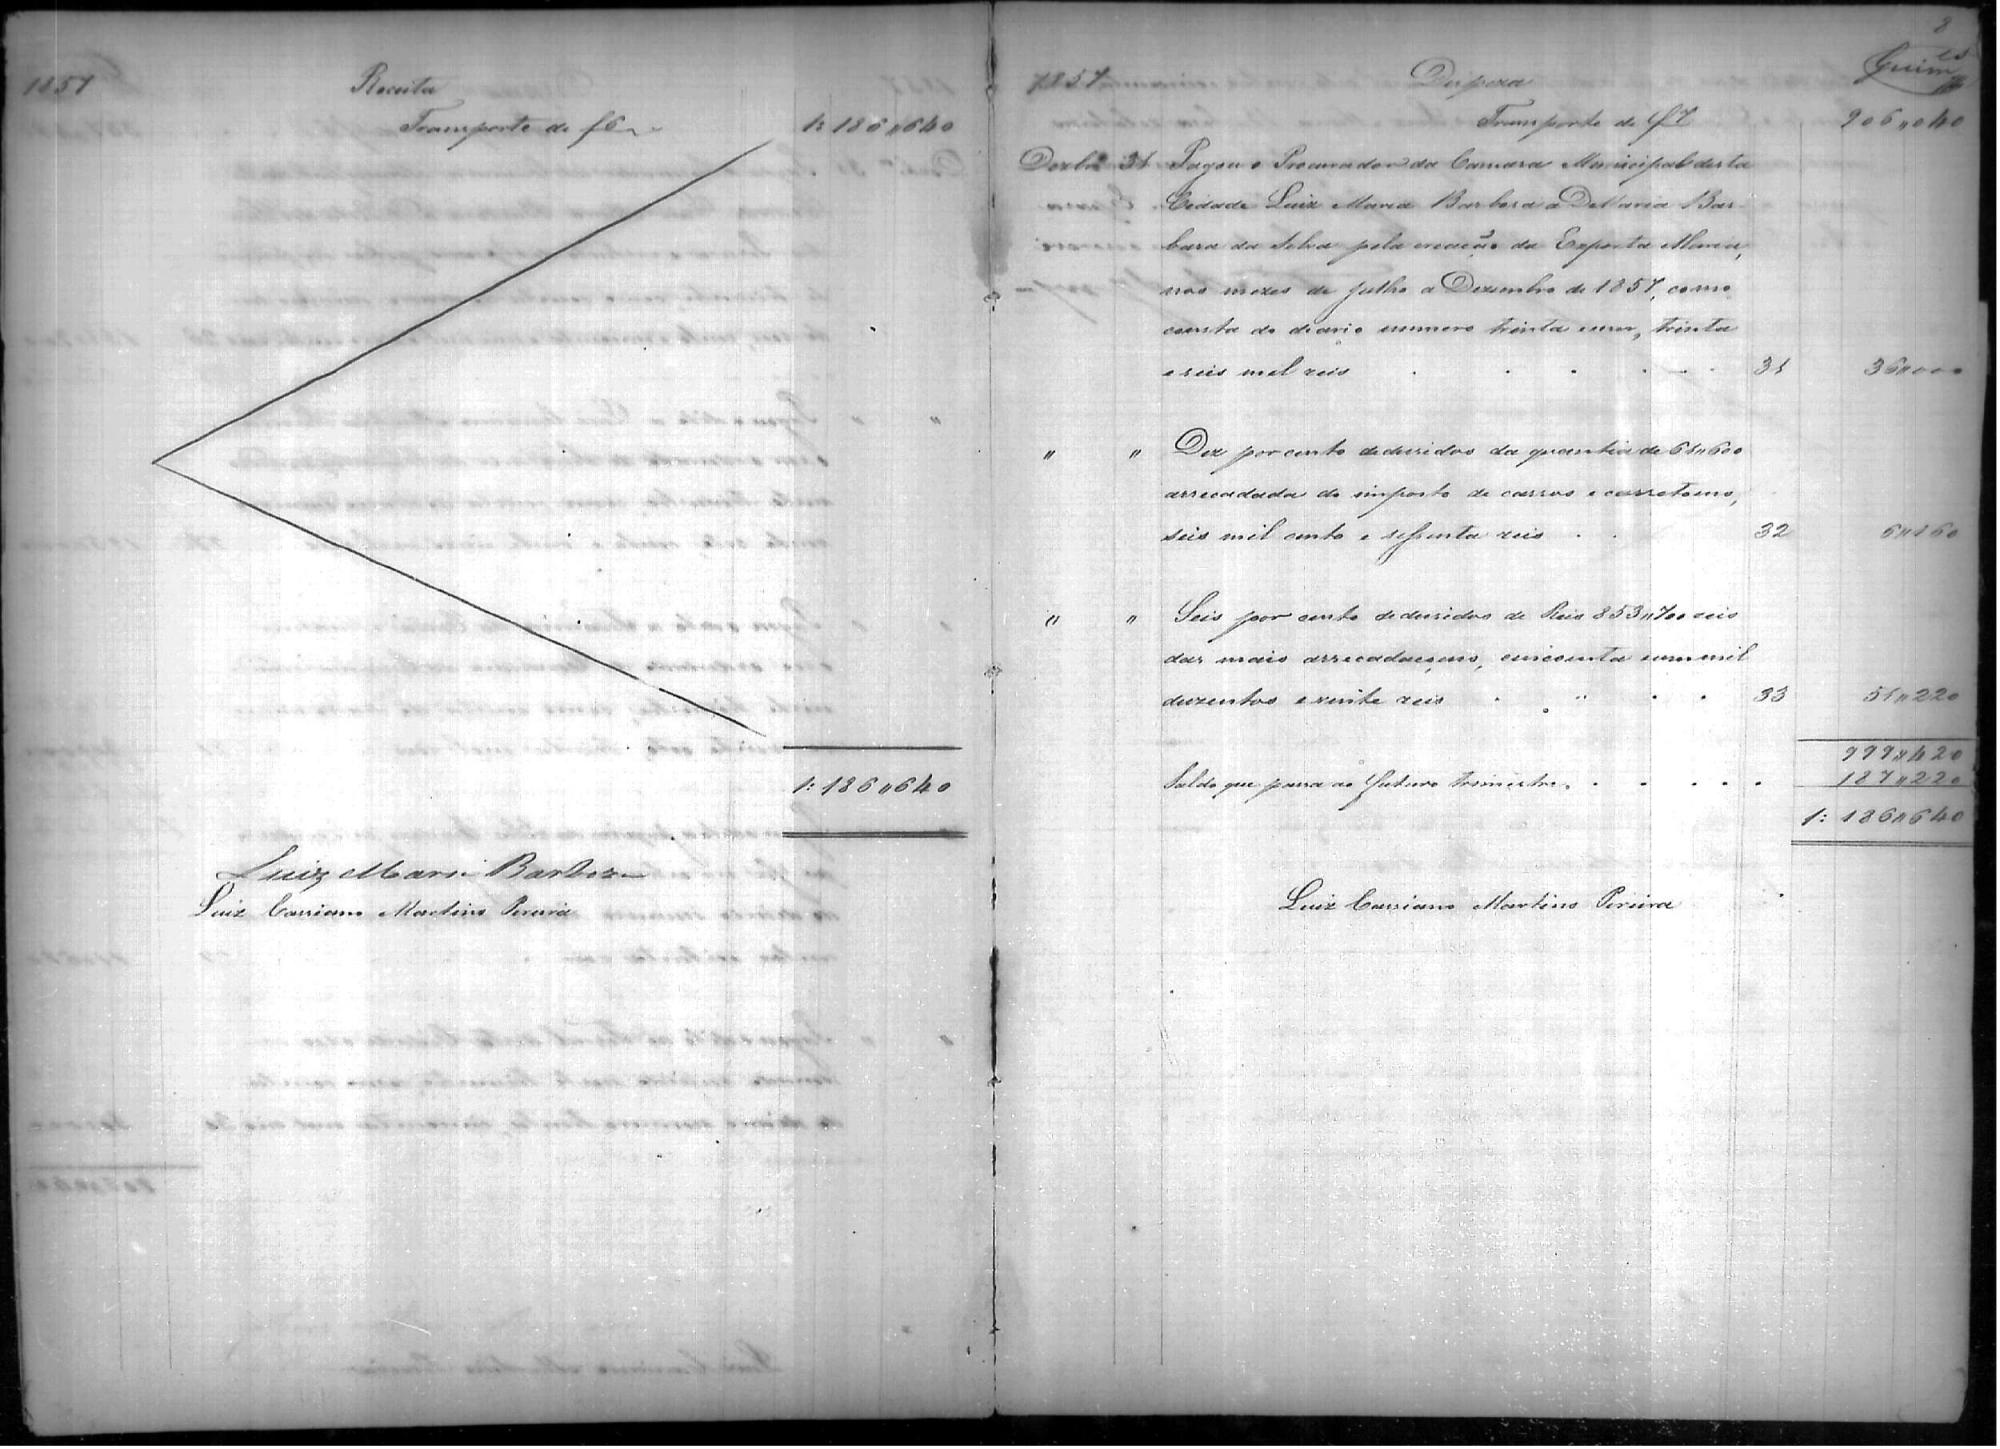 1857
Receita
Transporte de f 6
1: 186 " 640
1: 186 " 640
Luiz Maria Barboza
Luiz Cassiano Martins Pereira
8
Guim.es
1857
Despeza
Transporte de f 7
906 " 040
Dezbro 31 Pagou o Procurador da Camara Municipal desta
Cidade Luiz Maria Barboza a D. Maria Bar-
bara da Silva pela creação da Exposta Maria,
nos mezes de Julho a Dezembro de 1857, como
consta do diario numero trinta e um, trinta
e seis mil reis . . . . . . 31 36 " 000
" " Dez por cento dedusidos da quantia de 61 " 600
arrecadada do imposto de carros e carretoens,
seis mil cento e sessenta reis . . 32 6 " 160
" " Seis por cento dedusidos de Reis 853 " 700 reis
das mais arrecadaçoens, cincoenta e um mil
duzentos e vinte reis . " . . 33 51 " 220
999 " 420
Saldo que passa ao futuro trimestre . . . . . . 187 " 220
1: 186 " 640
Luiz Cassiano Martins Pereira